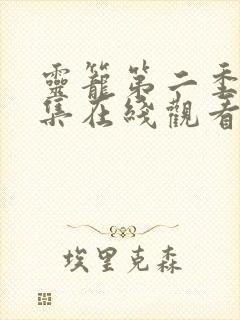 靈籠第二季
集在綫觀看
埃里克森